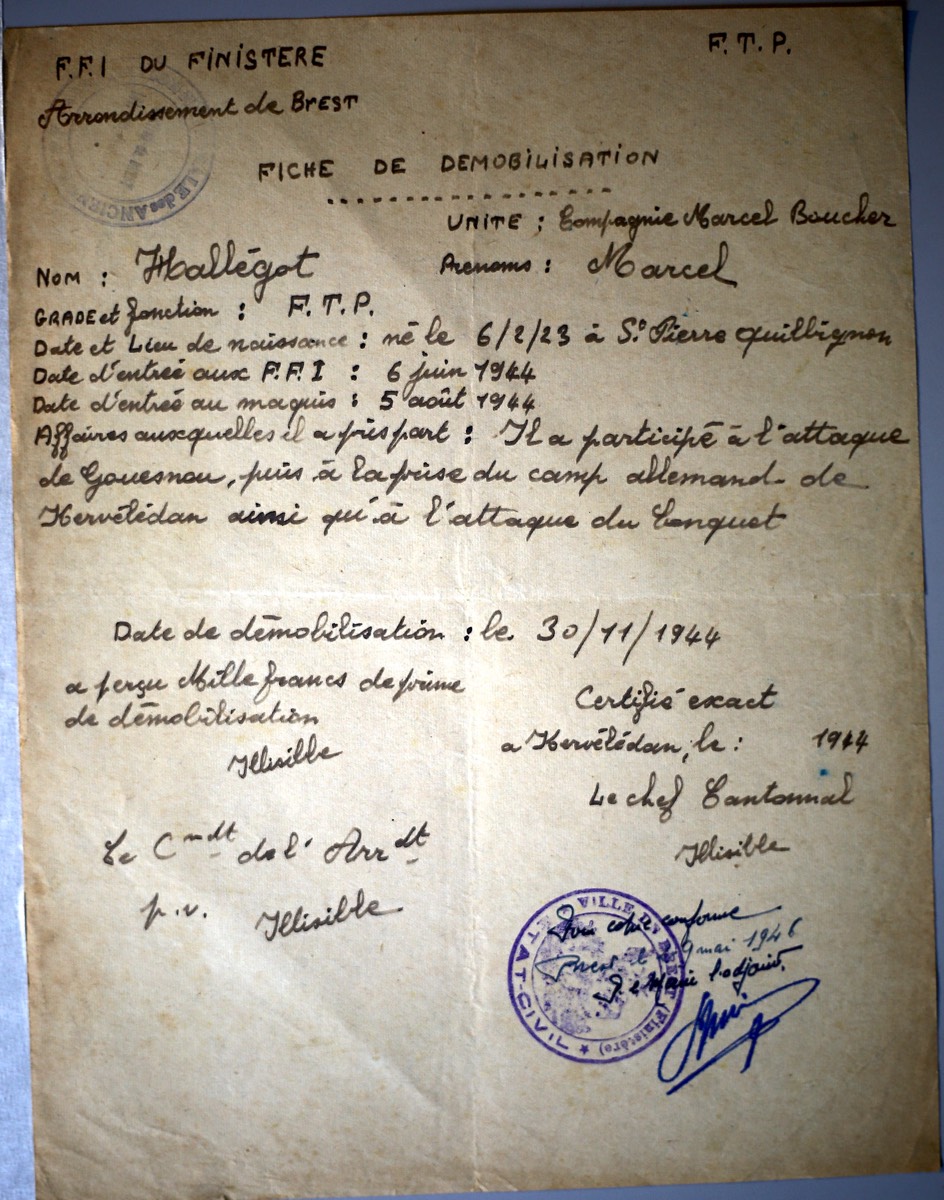 F.F.I DU FINISTERE
F.T.P.
Arrondissement de BREST
LE des ANCIEN
FICHE DE DEMOBILISATION
UNITE : Compagnie Marcel Boucher
Nom : Hallégot Prenoms : Marcel
GRADE et fonction : F.T.P.
Date et Lieu de naissance : né le 6/2/23 à St Pierre Quilbignon
Date d'entrée aux F.F.I : 6 juin 1944
Date d'entrée au maquis : 5 août 1944
Affaires auxquelles il a pris part : Il a participé à l'attaque
de Gouesnou, puis à la prise du camp allemand de
Kervélédan ainsi qu'à l'attaque du Conquet
Date de démobilisation : le 30/11/1944
a perçu Mille francs de prime
de démobilisation
Illisible
Certifié exact
a Kervélédan, le : 1944
Le chef Cantonnal
Illisible
Le Cmdt de l'Arrdt
p.v. Illisible
VILLE DE BREST (Finistère) ★ ETAT-CIVIL
Pour copie conforme
Brest le 9 mai 1946
P. le Maire l'adjoint.